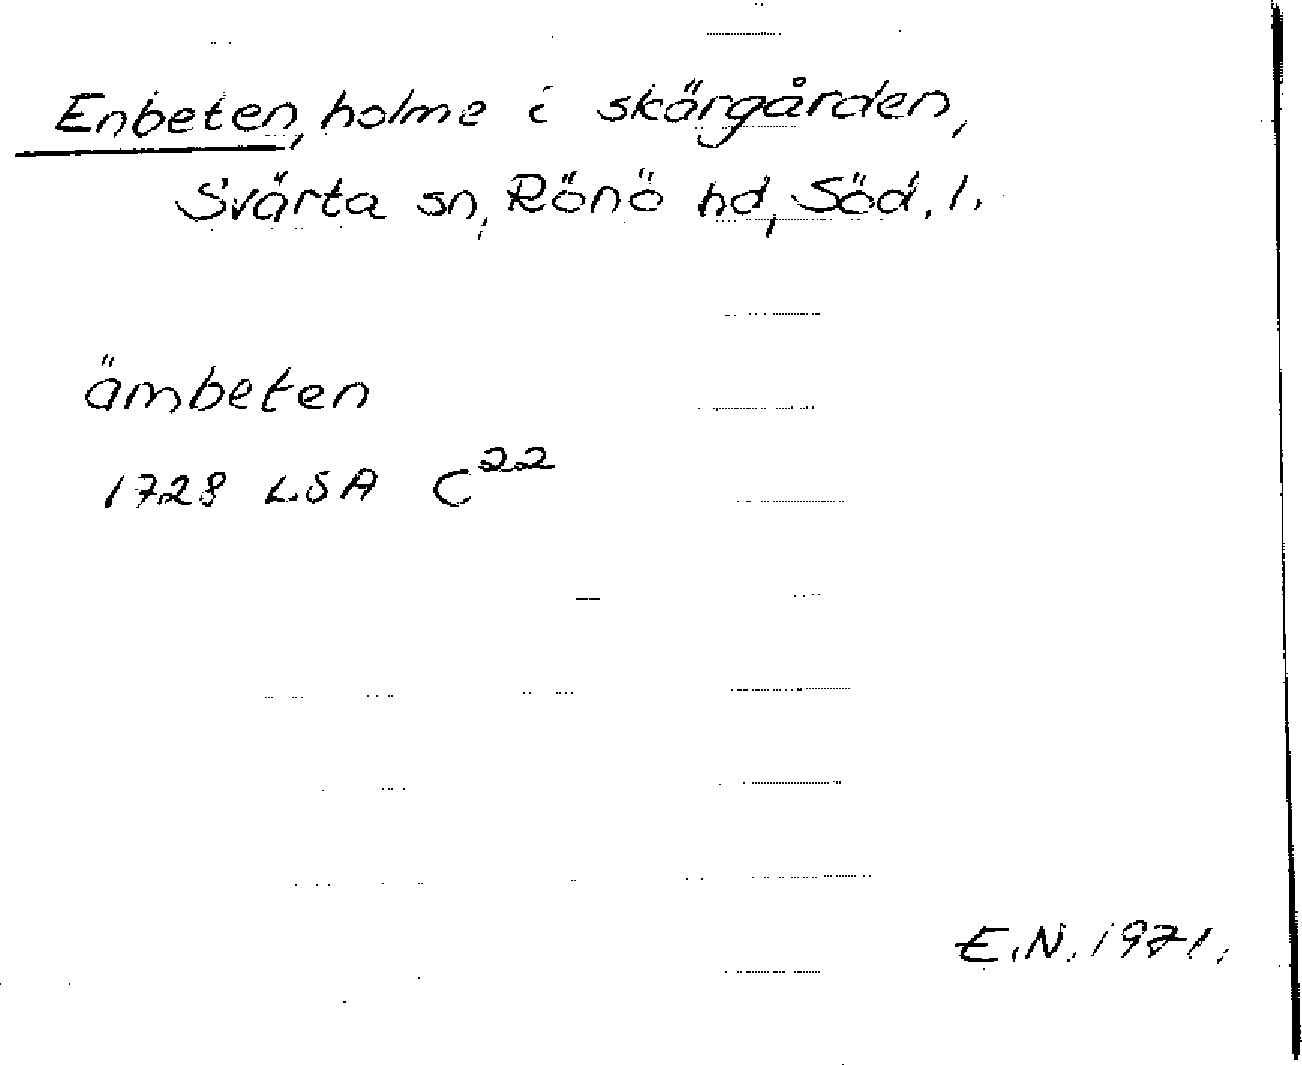 Enbeten, holme i skärgården,
Svärta sn, Rönö hd, Söd. l.
ämbeten
1728 LSA C22
E.N. 1971.